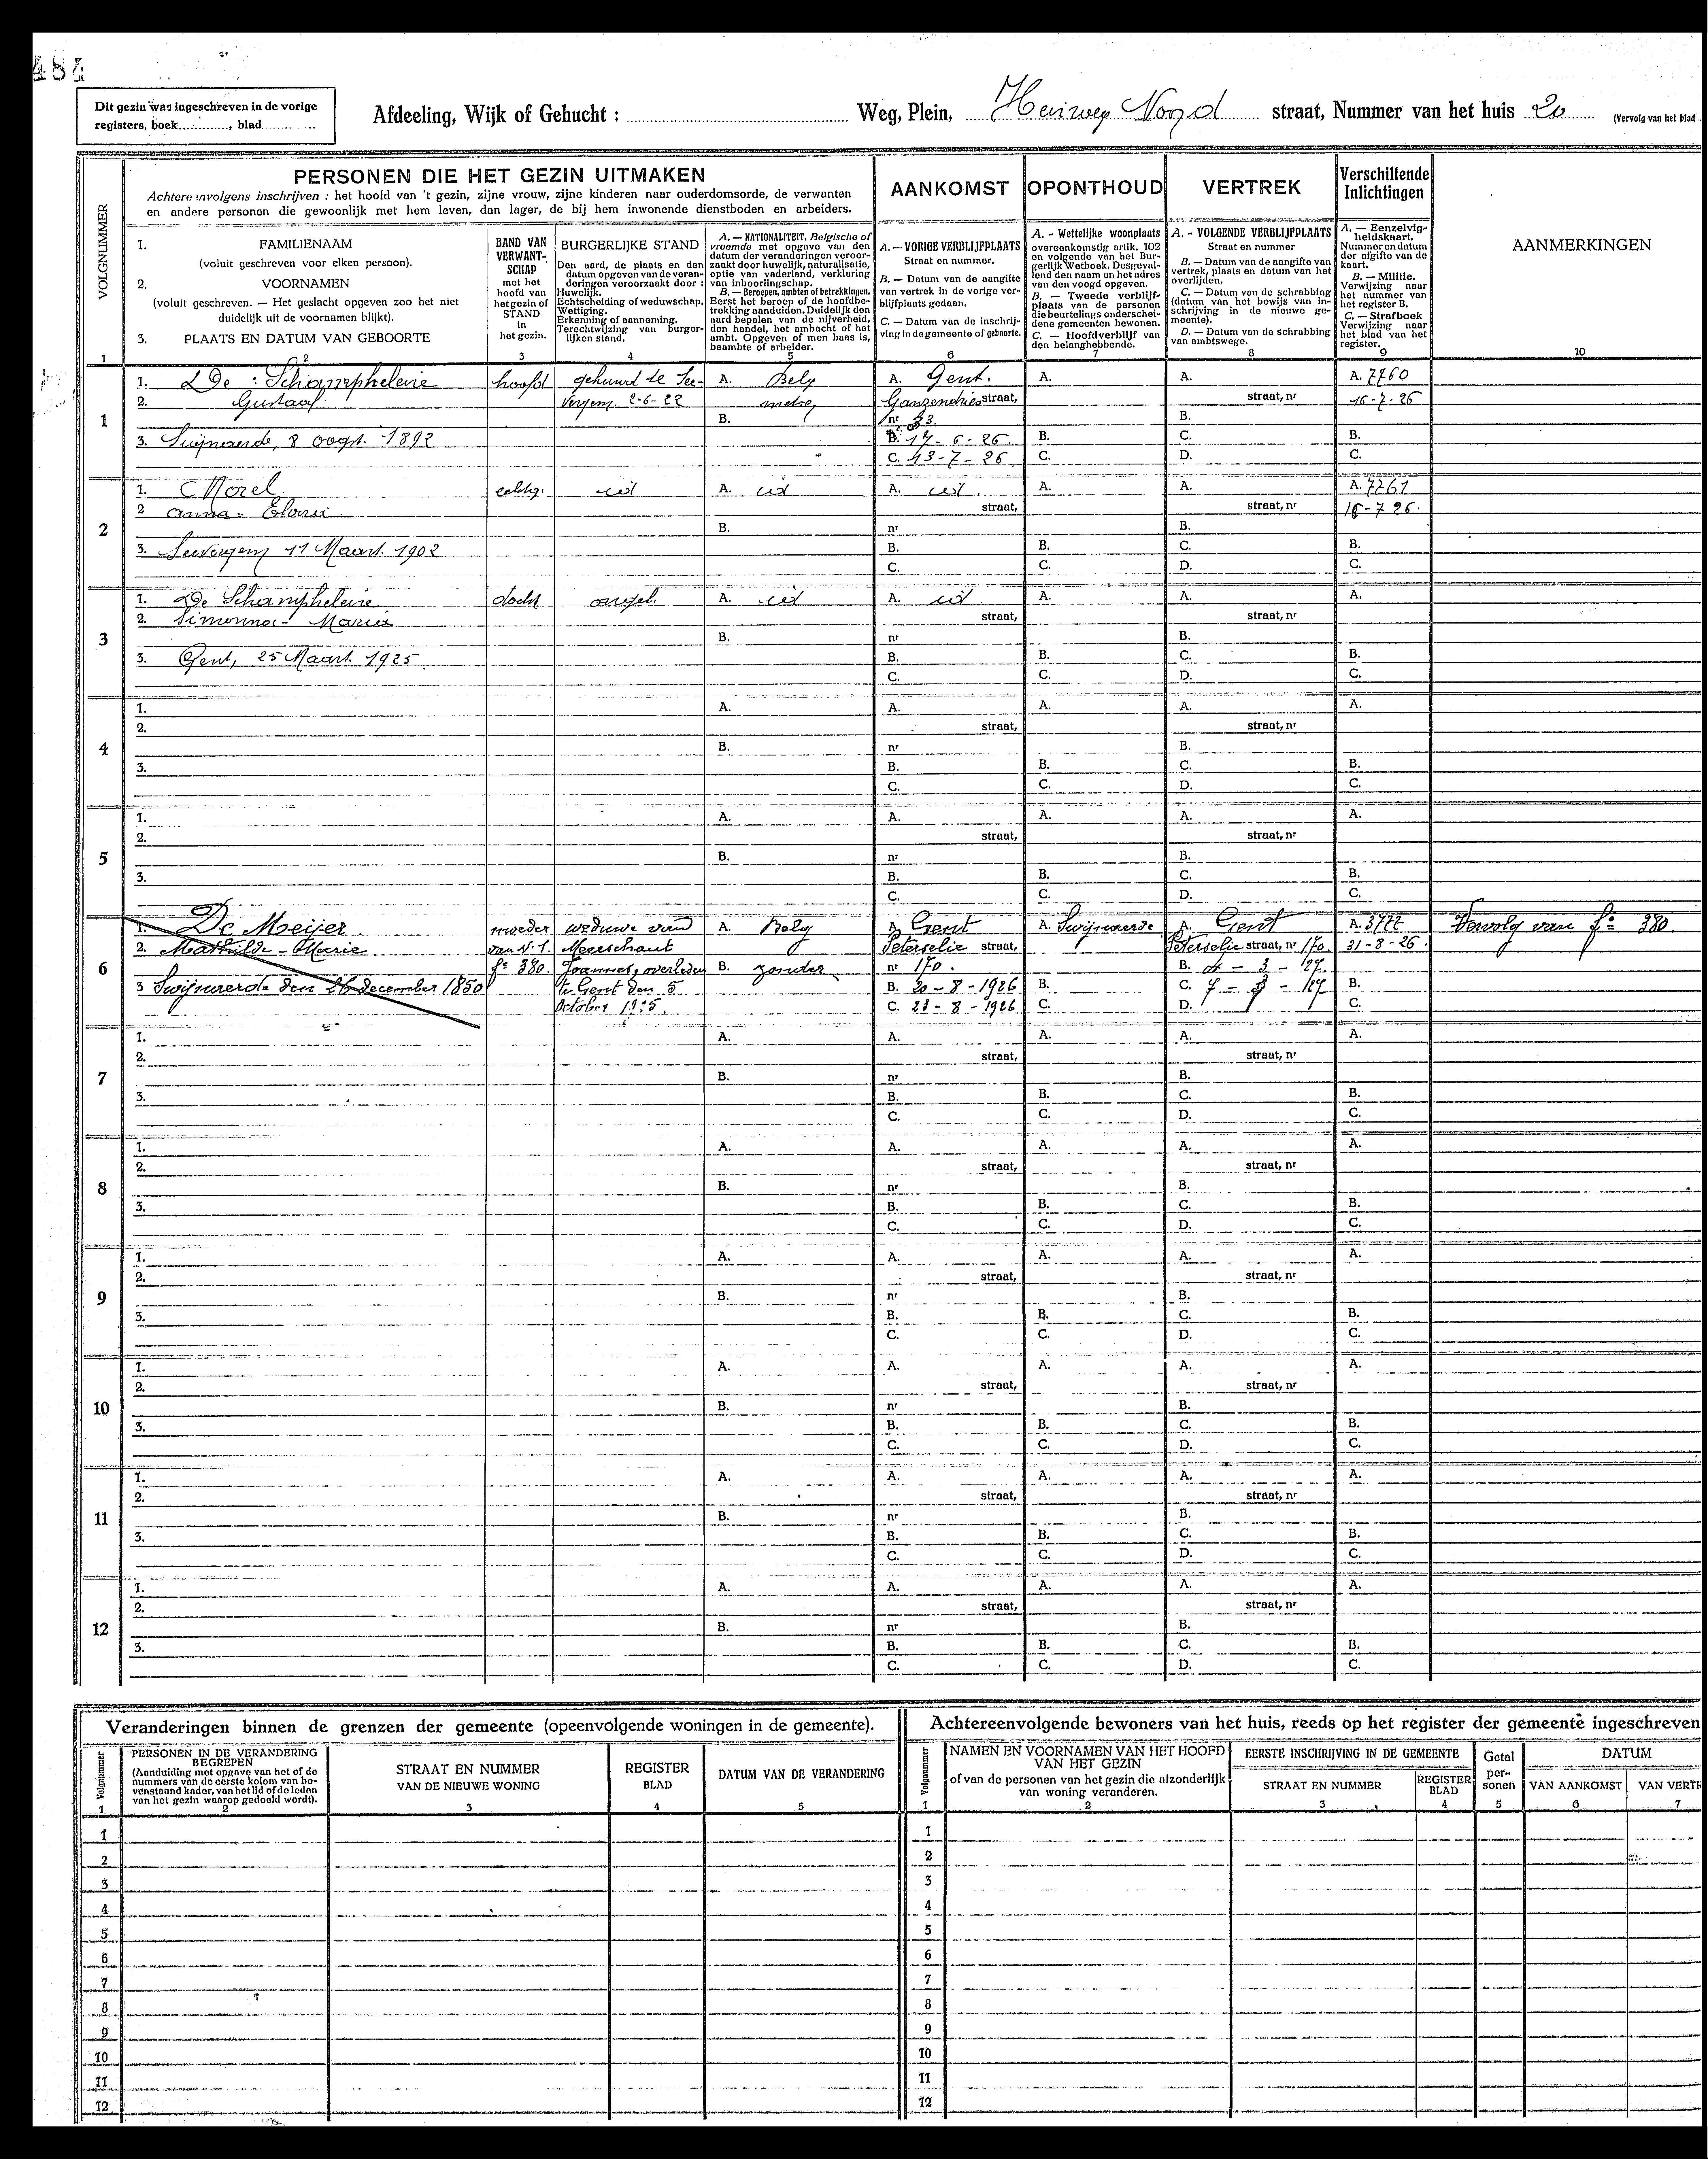 484
Dit gezin was ingeschreven in de vorige
registers, boek............, blad..............
Afdeeling, Wijk of Gehucht :
Weg, Plein, Heirweg Noord straat, Nummer van het huis 20
(Vervolg van het blad
PERSONEN DIE HET GEZIN UITMAKEN
Achtereenvolgens inschrijven : het hoofd van 't gezin, zijne vrouw, zijne kinderen naar ouderdomsorde, de verwanten
en andere personen die gewoonlijk met hem leven, dan lager, de bij hem inwonende dienstboden en arbeiders.
AANKOMST
OPONTHOUD
VERTREK
Verschillende
Inlichtingen
VOLGNUMMER
1. FAMILIENAAM
(voluit geschreven voor elken persoon).
2. VOORNAMEN
(voluit geschreven. — Het geslacht opgeven zoo het niet
duidelijk uit de voornamen blijkt).
3. PLAATS EN DATUM VAN GEBOORTE
BAND VAN
VERWANT-
SCHAP
met het
hoofd van
het gezin of
STAND
in
het gezin.
BURGERLIJKE STAND
Den aard, de plaats en den
datum opgeven van de veran-
deringen veroorzaakt door :
Huwelijk.
Echtscheiding of weduwschap.
Wettiging.
Erkenning of aanneming.
Terechtwijzing van burger-
lijken stand.
A. — NATIONALITEIT. Belgische of
vreemde met opgave van den
datum der veranderingen veroor-
zaakt door huwelijk, naturalisatie,
optie van vaderland, verklaring
van inboorlingschap.
B. — Beroepen, ambten of betrekkingen.
Eerst het beroep of de hoofdbe-
trekking aanduiden. Duidelijk den
aard bepalen van de nijverheid,
den handel, het ambacht of het
ambt. Opgeven of men baas is,
beambte of arbeider.
A. — VORIGE VERBLIJFPLAATS
Straat en nummer.
B. — Datum van de aangifte
van vertrek in de vorige ver-
blijfplaats gedaan.
C. — Datum van de inschrij-
ving in de gemeente of geboorte.
A. - Wettelijke woonplaats
overeenkomstig artik. 102
en volgende van het Bur-
gerlijk Wetboek. Desgeval-
lend den naam en het adres
van den voogd opgeven.
B. — Tweede verblijf-
plaats van de personen
die beurtelings onderschei-
dene gemeenten bewonen.
C. — Hoofdverblijf van
den belanghebbende.
A. - VOLGENDE VERBLIJFPLAATS
Straat en nummer
B. — Datum van de aangifte van
vertrek, plaats en datum van het
overlijden.
C. — Datum van de schrabbing
(datum van het bewijs van in-
schrijving in de nieuwe ge-
meente).
D. — Datum van de schrabbing
van ambtswege.
A. — Eenzelvig-
heidskaart.
Nummer en datum
der afgifte van de
kaart.
B. — Militie.
Verwijzing naar
het nummer van
het register B.
C. — Strafboek
Verwijzing naar
het blad van het
register.
AANMERKINGEN
1 2 3 4 5 6 7 8 9 10
1. De Schampheleire hoofd gehuwd te See- A. Belg A. Gent. A. A. A. 7760
2. Gustaaf vergem 2-6-22 Ganzendries straat, straat, nr 16-7-26
1 B. nr 33 B.
3. Swijnaarde, 8 oogst. 1892 B. 17-6-26 B. C. B.
C. 13-7-26 C. D. C.
1. Morel echtg. id A. id A. id. A. A. A. 7761
2 Anna - Elvira straat, straat, nr 16-7-26.
2 B. nr B.
3. Seevergem 11 Maart. 1902 B. B. C. B.
C. C. D. C.
1. De Schampheleire docht ongeh. A. id A. id A. A. A.
2. Simonna - Maria straat, straat, nr
3 B. nr B.
3. Gent, 25 Maart. 1925 B. B. C. B.
C. C. D. C.
1. A. A. A. A. A.
2. straat, straat, nr
4 B. nr B.
3. B. B. C. B.
C. C. D. C.
1. A. A. A. A. A.
2. straat, straat, nr
5 B. nr B.
3. B. B. C. B.
C. C. D. C.
1. De Meijer moeder weduwe van A. Belg A. Gent A. Swijnaerde A. Gent A. 3772 Vervolg van f° 380
2. Mathilde - Marie van N. 1. Meerschaut Peterselie straat, Peterselie straat, nr 170. 31-8-26.
6 f° 380. Joannes, overleden B. zonder nr 170. B. 4 - 3 - 27.
3 Swijnaerde den 26 december 1850 te Gent den 5 B. 20-8-1926 B. C. 7 - 3 - 27 B.
October 1925. C. 23-8-1926 C. D. C.
1. A. A. A. A. A.
2. straat, straat, nr
7 B. nr B.
3. B. B. C. B.
C. C. D. C.
1. A. A. A. A. A.
2. straat, straat, nr
8 B. nr B.
3. B. B. C. B.
C. C. D. C.
1. A. A. A. A. A.
2. straat, straat, nr
9 B. nr B.
3. B. B. C. B.
C. C. D. C.
1. A. A. A. A. A.
2. straat, straat, nr
10 B. nr B.
3. B. B. C. B.
C. C. D. C.
1. A. A. A. A. A.
2. straat, straat, nr
11 B. nr B.
3. B. B. C. B.
C. C. D. C.
1. A. A. A. A. A.
2. straat, straat, nr
12 B. nr B.
3. B. B. C. B.
C. C. D. C.
Veranderingen binnen de grenzen der gemeente (opeenvolgende woningen in de gemeente).
Volgnummer
PERSONEN IN DE VERANDERING
BEGREPEN
(Aanduiding met opgave van het of de
nummers van de eerste kolom van bo-
venstaand kader, van het lid of de leden
van het gezin waarop gedoeld wordt).
STRAAT EN NUMMER
VAN DE NIEUWE WONING
REGISTER
BLAD
DATUM VAN DE VERANDERING
1 2 3 4 5
1
2
3
4
5
6
7
8
9
10
11
12
Achtereenvolgende bewoners van het huis, reeds op het register der gemeente ingeschreven
Volgnummer
NAMEN EN VOORNAMEN VAN HET HOOFD
VAN HET GEZIN
of van de personen van het gezin die afzonderlijk
van woning veranderen.
EERSTE INSCHRIJVING IN DE GEMEENTE
STRAAT EN NUMMER
REGISTER
BLAD
Getal
per-
sonen
DATUM
VAN AANKOMST VAN VERTR
1 2 3 4 5 6 7
1
2
3
4
5
6
7
8
9
10
11
12